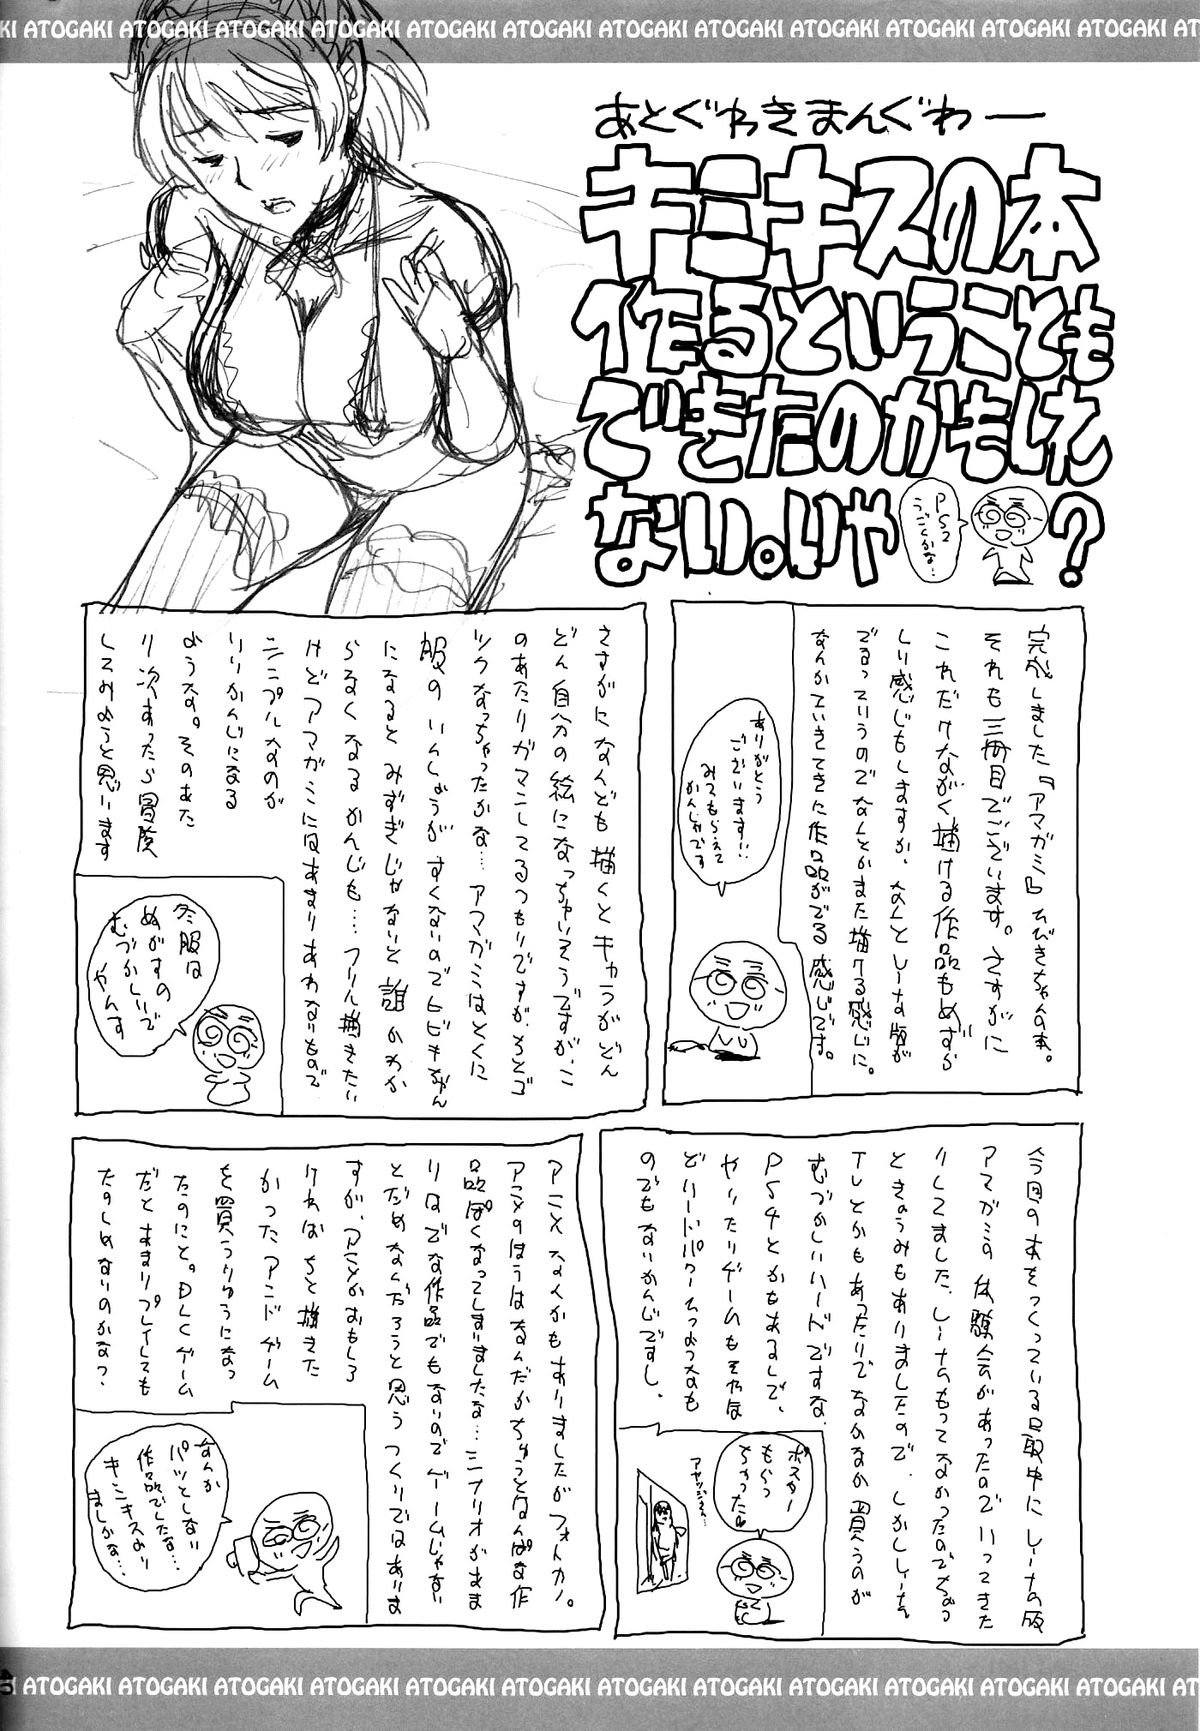 ATOGAKI ATOGAKI ATOGAKI ATOGAKI ATOGAKI ATOGAKI ATOGAKI ATOGAKI ATOGAKI ATOGAKI
あとぐゎきまんぐわー
キミキスの本
作るということも
できたのかもしれ
ない。いや
?
PS2
うごくかな…
完成しました『アマガミ』ひびきちゃん本。
それも三冊目でございます。さすがに
これだけながく描ける作品もめずら
しい感じもしますが、なんとしーな版が
でるっていうのでなんとかまた描ける感じに。
なんかていきてきに作品がでる感じです。
ありがとう
ございます!!
みてもらえて
かんしゃです
さすがになんども描くとキャラがどん
どん自分の絵になっちゃいそうですが、こ
のあたりガマンしてるつもりですが、ちとゴ
ツクなっちゃったかな…アマガミはとくに
服のいんしょうがすくないのでヒビキちゃん
になるとみずぎじゃないと誰かわか
らなくなるかんじも…フリル描きたい
けどアマガミにはあまりあわないもので
シンプルなのが
いいかんじになる
ような。そのあた
り次あったら冒険
してみようと思います
冬服は
ぬがすの
むづかしいで
やんす
今回の本をつくっている最中にしーなの版
アマガミの体験会があったのでいってきた
りしてました。しーなもってなかったのでちょっ
ときょうみもありましたので。しかししーな
TVとかもあったりでなかなか買うのが
むづかしいハードですな。
PS4とかもあるしで、
やりたいゲームもそんな
どハードパワーひつようなも
のでもないかんじですし。
ポスター
もらっ
ちゃった
アヤツジさん…
アニメなんかもありましたがフォトカノ。
アニメのほうはなんだかちゅうとはんぱな作
品ぽくなってしまいましたな…シナリオがあま
りはでな作品でもないのでゲームじゃない
とだめなんだろうと思うつくりではありま
すが、アニメがおもしろ
ければちと描きた
かったアンドゲーム
を買うりゆうになっ
たのにと。DLCゲーム
だとあまりプレイしても
たのしめないのかな?
なんか
パッとしない
作品でしたな…
キミキスより
ましかな…
ATOGAKI ATOGAKI ATOGAKI ATOGAKI ATOGAKI ATOGAKI ATOGAKI ATOGAKI ATOGAKI ATOGAKI